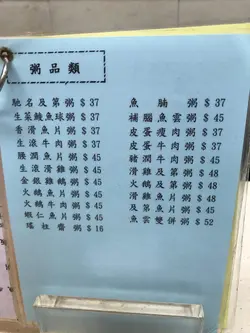 粥品類
馳名及第粥 $ 37
生菜鯪魚球粥 $ 37
香滑魚片粥 $ 37
生滾牛肉粥 $ 37
膶潤魚片粥 $ 45
生滾滑雞粥 $ 45
金銀雞鶴粥 $ 45
火鶴魚片粥 $ 45
火鶴牛肉粥 $ 45
蝦仁魚片粥 $ 45
瑤柱齋粥 $ 16
魚腩粥 $ 37
補腦魚雲粥 $ 45
皮蛋瘦肉粥 $ 37
皮蛋牛肉粥 $ 45
豬潤牛肉粥 $ 45
滑雞及第粥 $ 48
火鶴及第粥 $ 48
滑雞魚片粥 $ 45
魚雲雙拼粥 $ 52